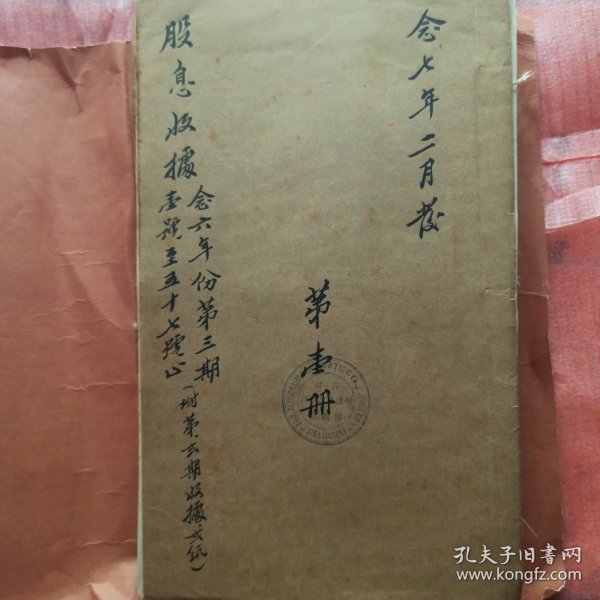 念七年二月發
第壹册
股息收據
念六年份第三期
壹號至五十七號止
(附第弍期收據六紙)
SHANGHAI
孔夫子旧书网
www.kongfz.com